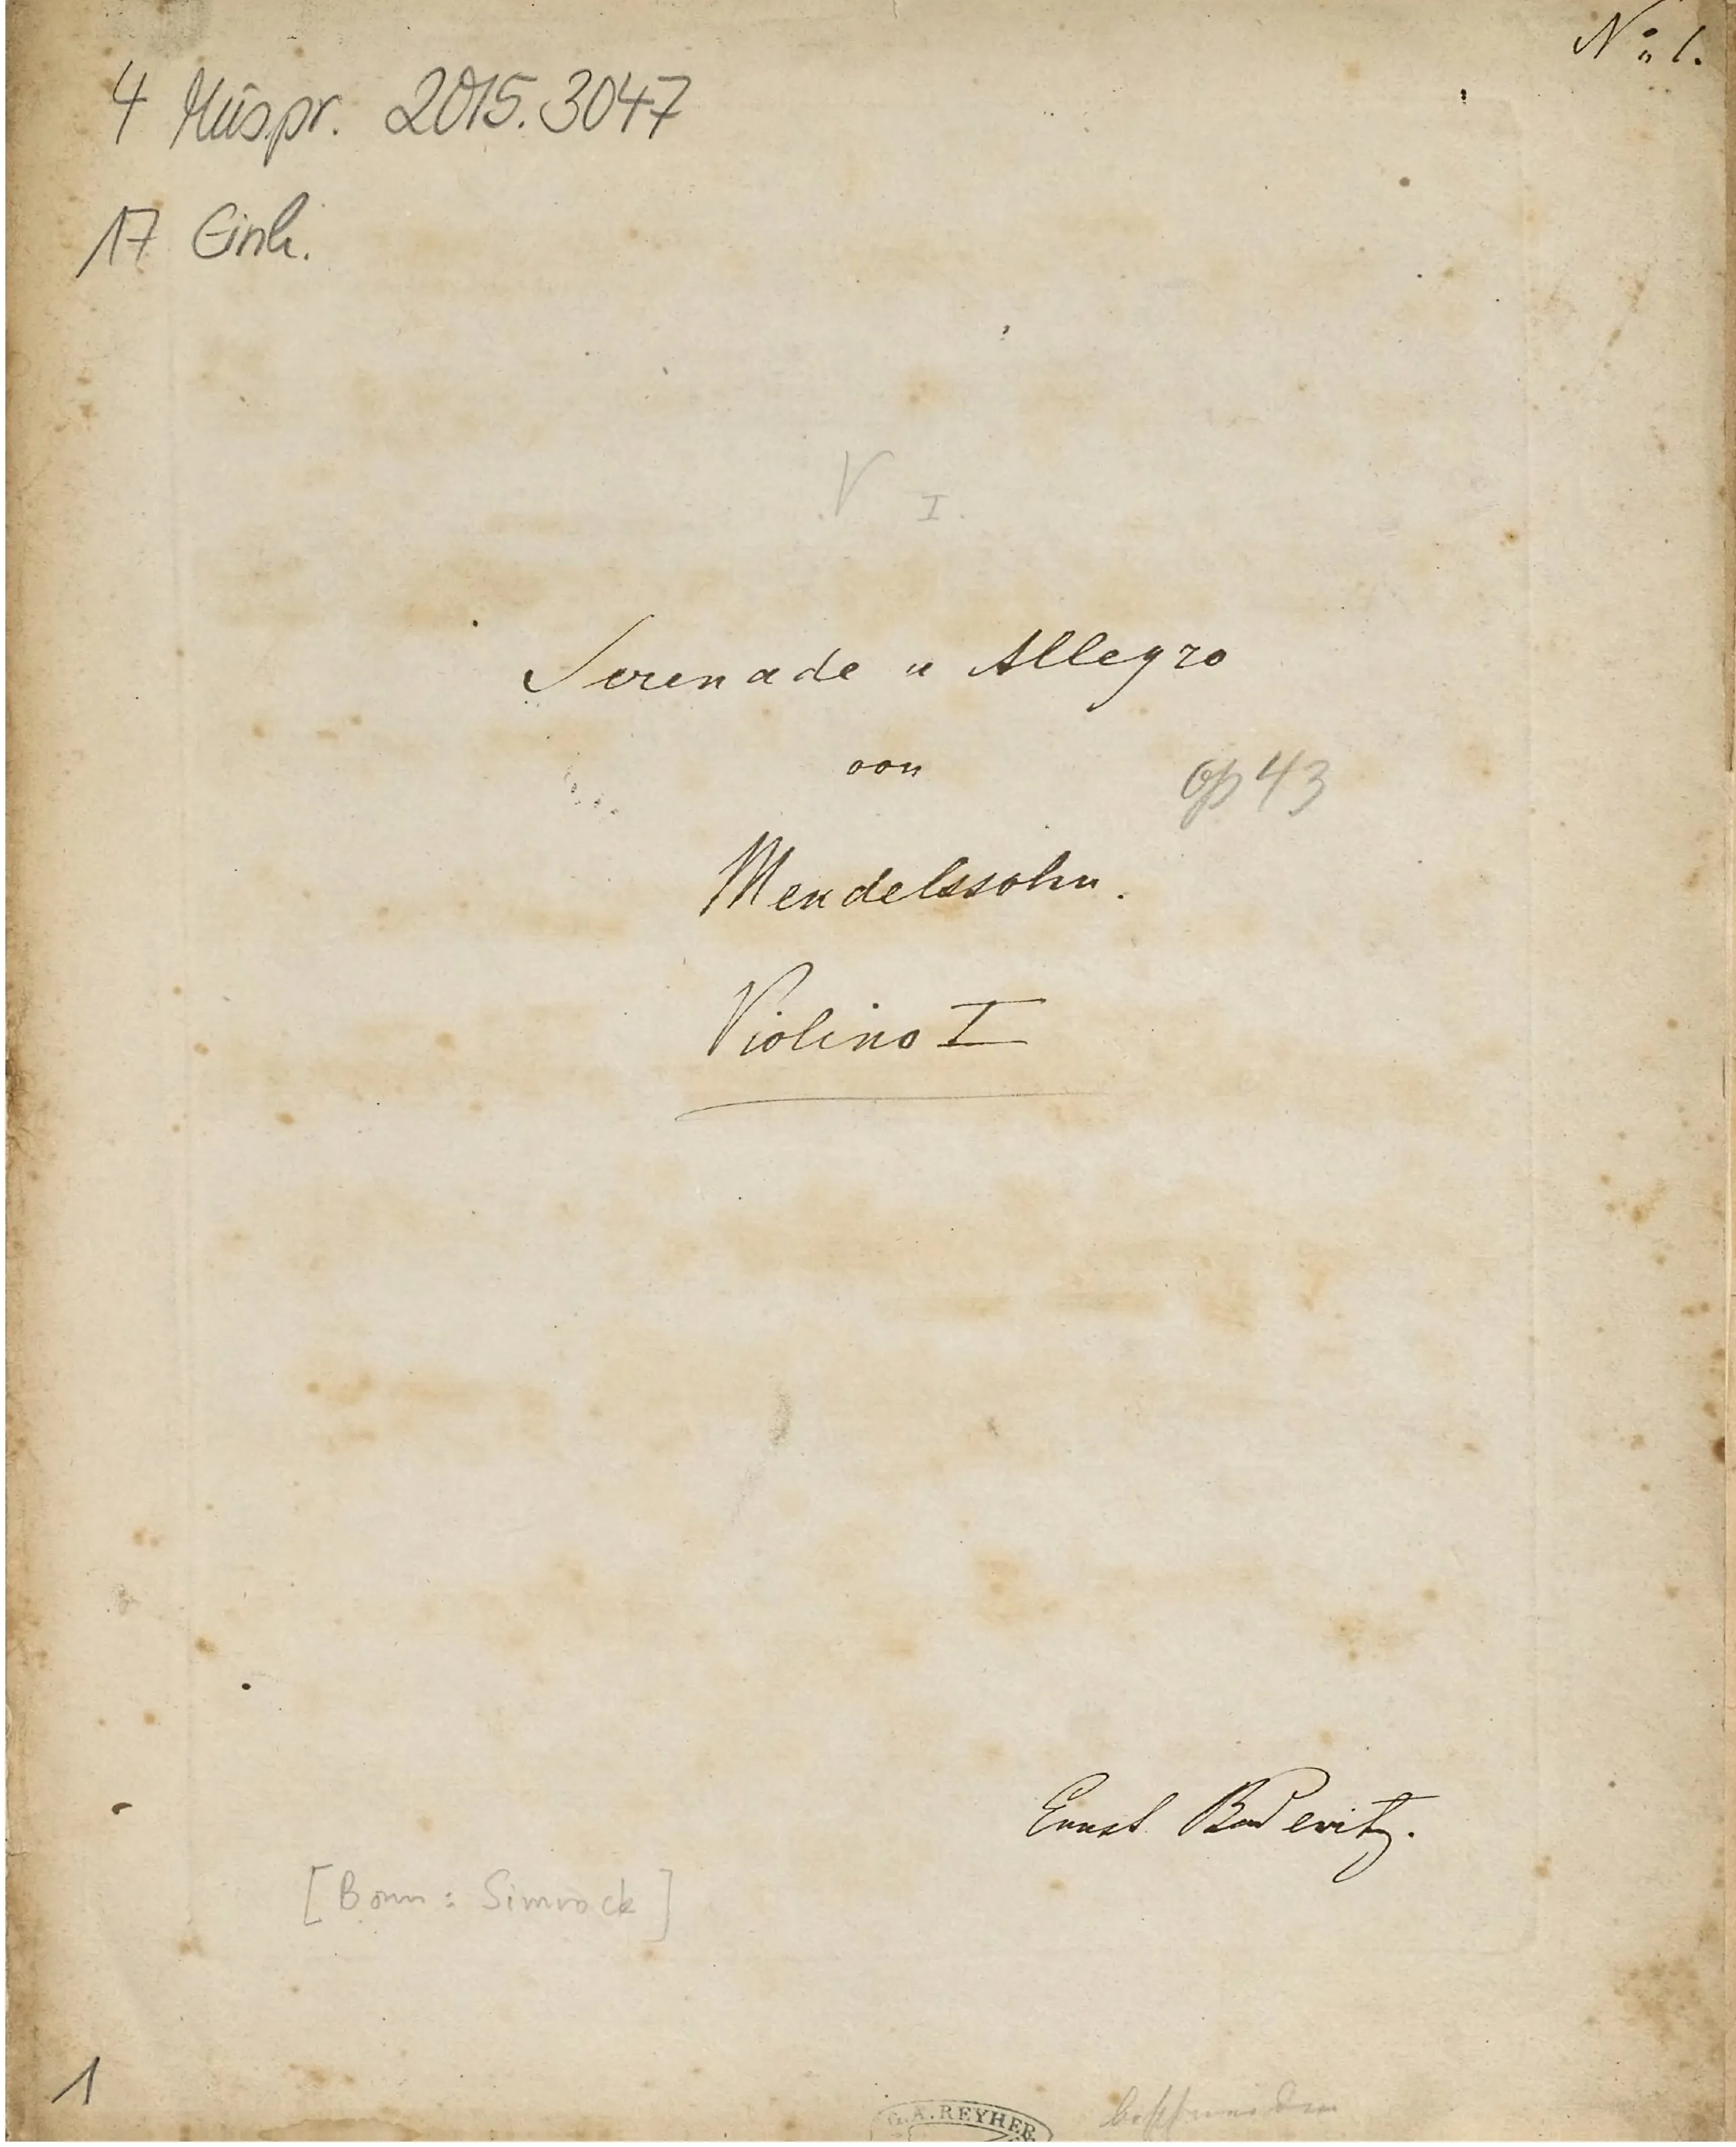 No 1.
4 Mus.pr. 2015.3047
17 Einh.
V I.
Serenade u Allegro
von
op 43
Mendelssohn.
Violino I
Ernst
[Bonn: Simrock]
1
G.A. REYHER